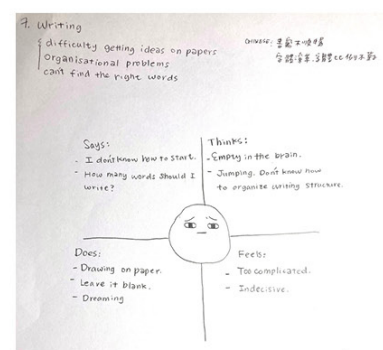 7. Writing
difficulty getting ideas on papers
organisational problems
can't find the right words
CHINESE:
Says:
- I don't know how to start.
- How many words should I write?
Thinks:
- Empty in the brain.
- Jumping. Don't know how to organise writing structure.
Does:
- Drawing on paper.
- Leave it blank.
- Dreaming
Feels:
- Too complicated.
- Indecisive.